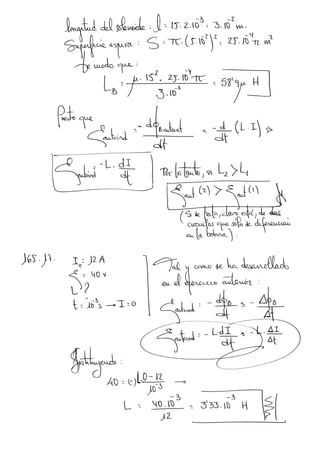 longitud del solenoide: l = 15·2·10⁻³ = 3·10⁻² m.
Superficie espira: S = π·(5·10⁻²)² = 25·10⁻⁴ π m²
de modo que:
L_B = μ·15²·25·10⁻⁴π / 3·10⁻² = 58'9μ H
Puesto que
ξ autoind = - dϕ_B autoind / dt = - d/dt (L·I) ⇒
ξ autoind = - L·dI/dt
Por lo tanto, si L₂ > L₁
ξ aut (2) > ξ aut (1)
(Se trata, claro está, de dos
circuitos que sólo se diferencian
en la bobina).
165.17.
I₀ = 12 A
ξ = 40 V
L?
t = 10⁻³ s → I = 0
Tal y como se ha desarrollado
en el ejercicio anterior:
ξ autoind = - dϕ_B/dt = - Δϕ_B/Δt
ξ autoind = - L dI/dt = - L·ΔI/Δt
Sustituyendo:
40 = (-)L 0-12/10⁻³ →
L = 40·10⁻³/12 = 3'33·10⁻³ H